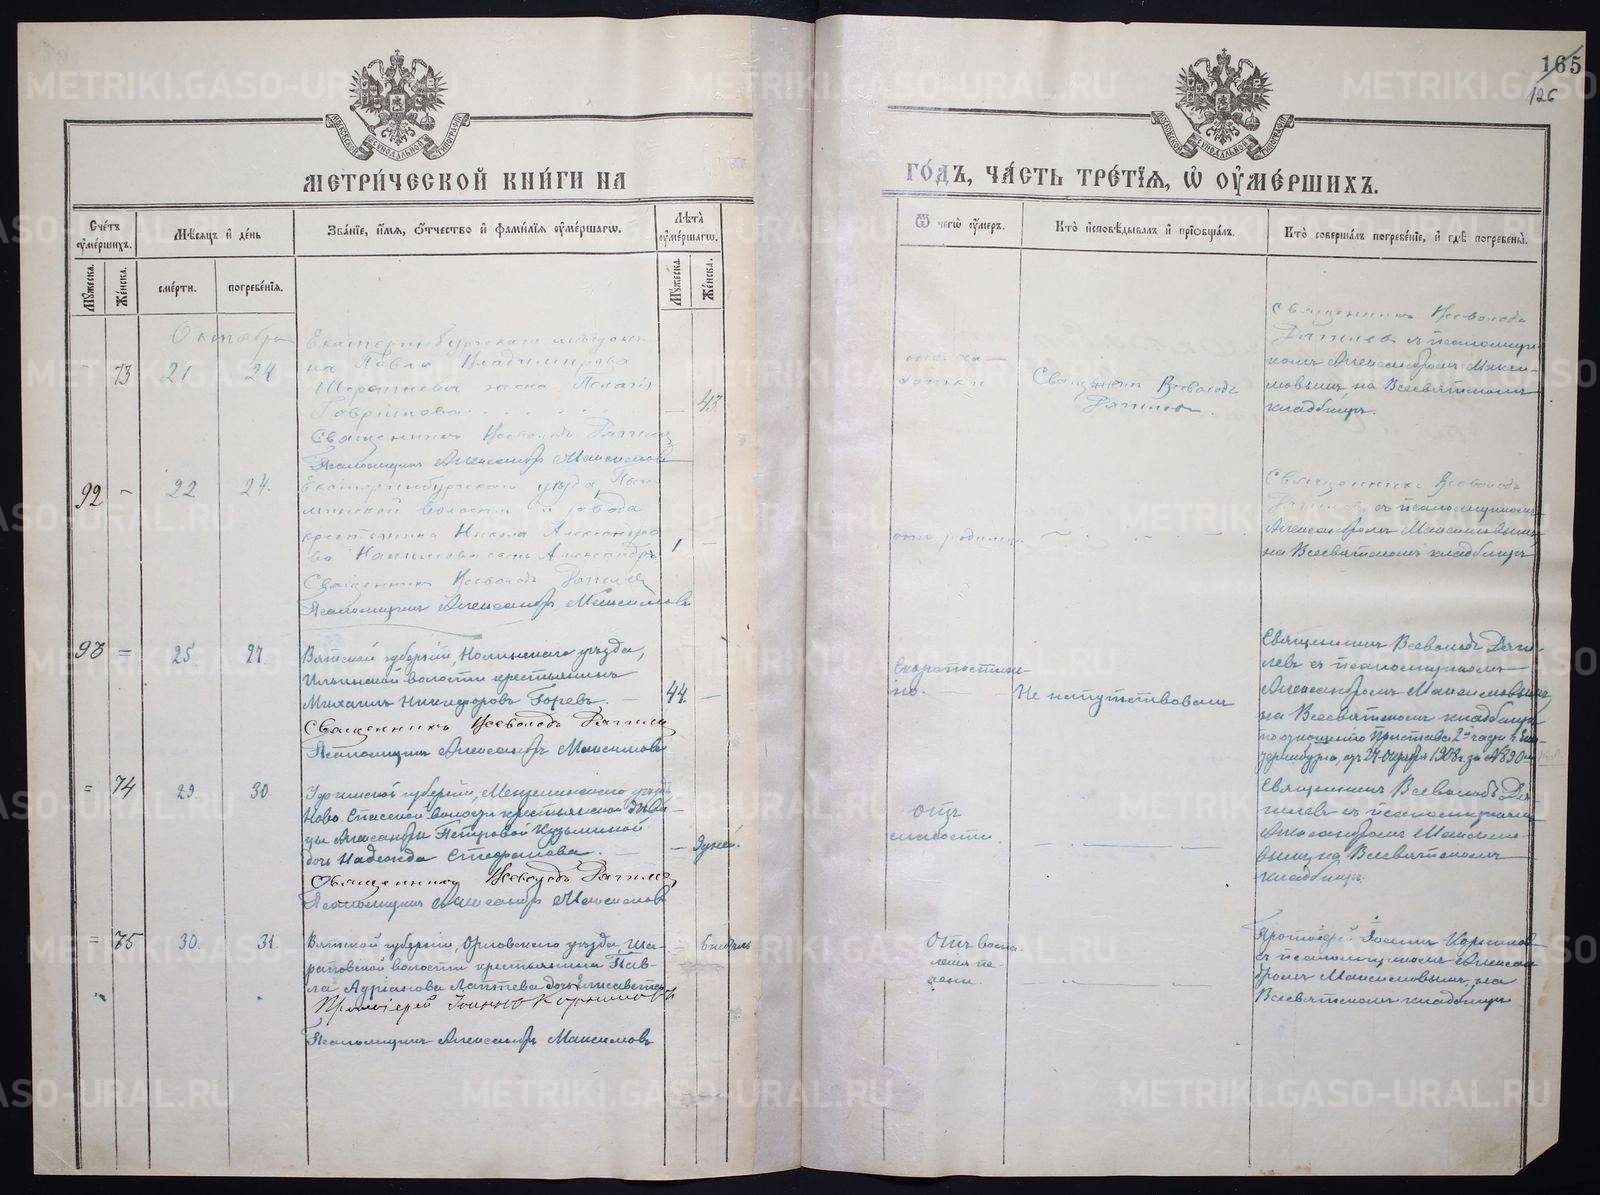 165
126
МЕТРИ́ЧЕСКОЙ КНИ́ГИ НА
ГО́ДЪ, ЧА́СТЬ ТРЕ́ТІѦ, Ѡ ОУМЕ́РШИХЪ.
Сче́тъ оуме́ршихъ.
Мѣсѧцъ и де́нь
Зва́ніе, и́мѧ, о́тчество и фами́лїѧ оуме́ршагѡ.
Лѣ́та оуме́ршагѡ.
Ѿ чегѡ̀ оу́меръ.
Кто̀ исповѣ́дывалъ и прїѡбща́лъ.
Кто̀ соверша́лъ погребе́нїе, и гдѣ̀ погребены̀.
Му́жеска.
Же́нска.
сме́рти.
погребе́нїѧ.
Му́жеска.
Же́нска.
Октября
73 21 24
Екатеринбургскаго мѣщани-
на Павла Владимирова
жена
Гаврилова
43
Священникъ Всеволодъ
Псаломщикъ Александръ Максимовъ
Священникъ Всеволодъ
Священникъ Всеволодъ
съ псаломщи-
комъ Александромъ Макси-
мовымъ на Всесвятскомъ
кладбищѣ.
92 – 22 24.
Екатеринбургскаго уѣзда, Пыш-
минской волости и завода
крестьянина Александро-
ва сынъ Александръ
1 –
Священникъ Всеволодъ
Псаломщикъ Александръ Максимовъ
отъ родимца
Священникъ Всеволодъ
съ псаломщикомъ
Александромъ Максимовымъ
на Всесвятскомъ кладбищѣ
93 = 25. 27.
Вятской губерніи, Нолинскаго уѣзда,
Ильинской волости крестьянинъ
Михаилъ Никифоровъ Горевъ.
44. –
Священникъ Всеволодъ
Псаломщикъ Александръ Максимовъ
Скоропостиж-
но.
Не напутствованъ
Священникъ Всеволодъ
съ псаломщикомъ
Александромъ Максимовымъ
на Всесвятскомъ кладбищѣ
по отношенію Пристава 2й части г. Ека-
теринбурга, отъ 27 октября 1908 г. за №
= 74 29. 30
Уфимской губерніи, Мензелинскаго уѣзда
Ново-Спасской волости крестьянской дѣви-
цы Александры Петровой Кузьминой
дочь Надежда Стефанова.
– 9 дней.
Священникъ Всеволодъ
Псаломщикъ Александръ Максимовъ
отъ
слабости
Священникъ Всеволодъ
съ псаломщикомъ
Александромъ Максимо-
вымъ, на Всесвятскомъ
кладбищѣ.
= 75 30. 31.
Вятской губерніи, Орловскаго уѣзда, Ша-
раповской волости крестьянина Пав-
ла Адріанова Лаптева дочь Елисавета
– 6 недѣль
Протоіерей Іоаннъ Корниловъ
Псаломщикъ Александръ Максимовъ
Отъ воспа-
ленія пе-
чени.
Протоіерей Іоаннъ Корнилов-
съ псаломщикомъ Алексан-
дромъ Максимовымъ, на
Всесвятскомъ кладбищѣ
METRIKI.GASO-URAL.RU